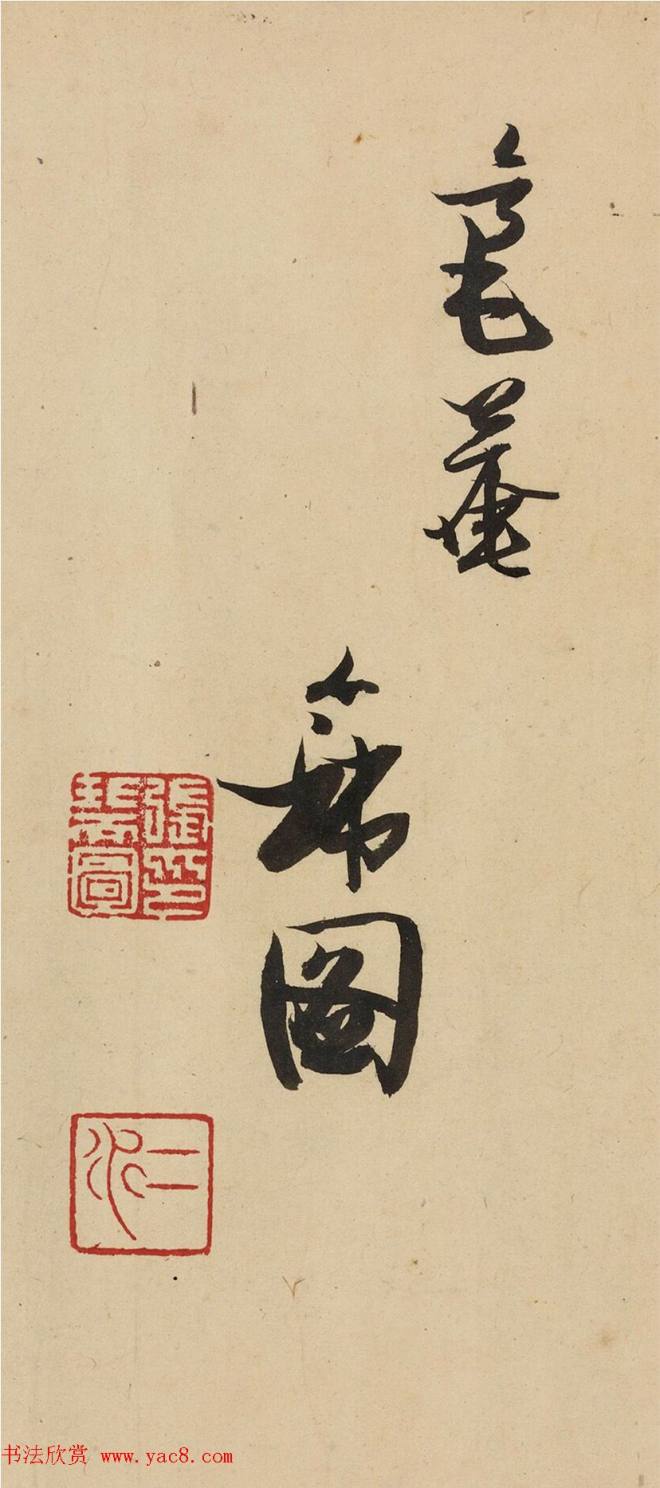 毫菴
瑞圖
張印瑞圖
二水
书法欣赏 www.yac8.com